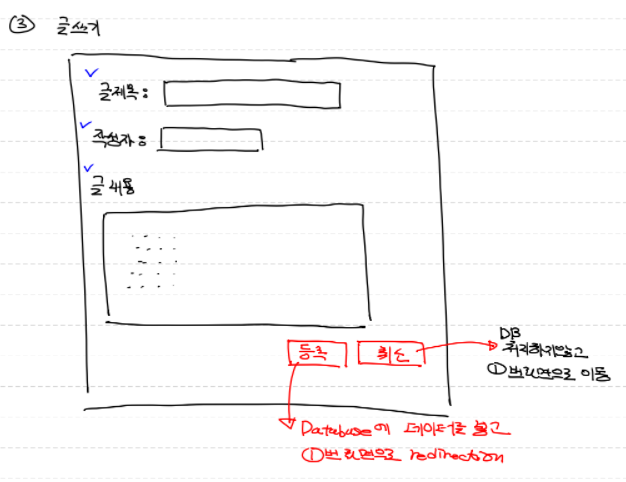 ③ 글쓰기
글제목 :
작성자 :
글 내용
등록 취소
DB
처리하지않고
①번화면으로 이동
Database에 데이터를 넣고
①번 화면으로 redirection